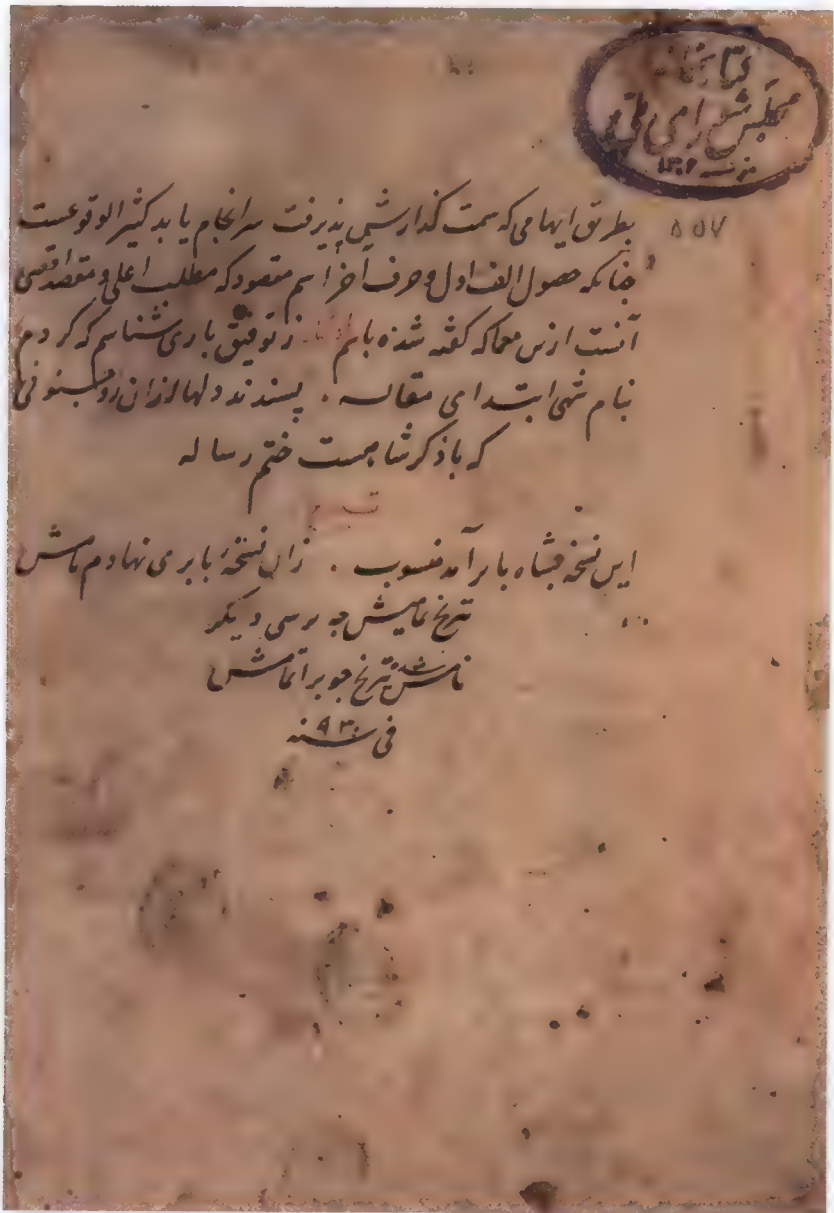 کتابخانه
مجلس شورای ملی
سنه ۱۳۰۲
۵۵۷
بطریق ایهامی که سمت گذارش پذیرفت سرانجام یابد کثیر الوقوعست
چنانکه حصول الف اول و حرف آخر اسم مقصود که مطلب اعلی و مقصد اقصی
آنست ازین معما که گفته شده باسم ز توفیق باری شناسم که کردم
بنام شهی ابتدای مقاله . پسندند دلها ازان رو
که با ذکر شاهست ختم رساله
این نسخه بشاه بابر آمد منسوب . زان نسخهٔ بابری نهادم نامش
تریخ نمایش جو برسی دیکر
نامش شده تریخ جو بر اتمامش
فی سنه ۹۳۰